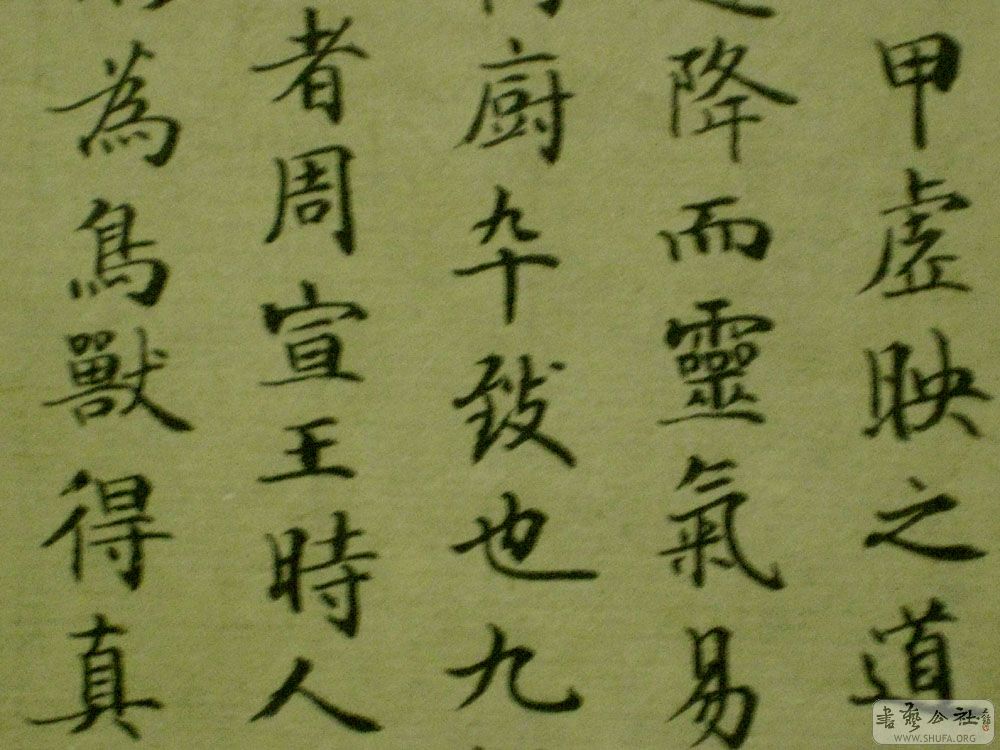 甲虛映之道
降而靈氣易
廚卆致也九
者周宣王時人
為鳥獸得真
書藝公社
WWW.SHUFA.ORG